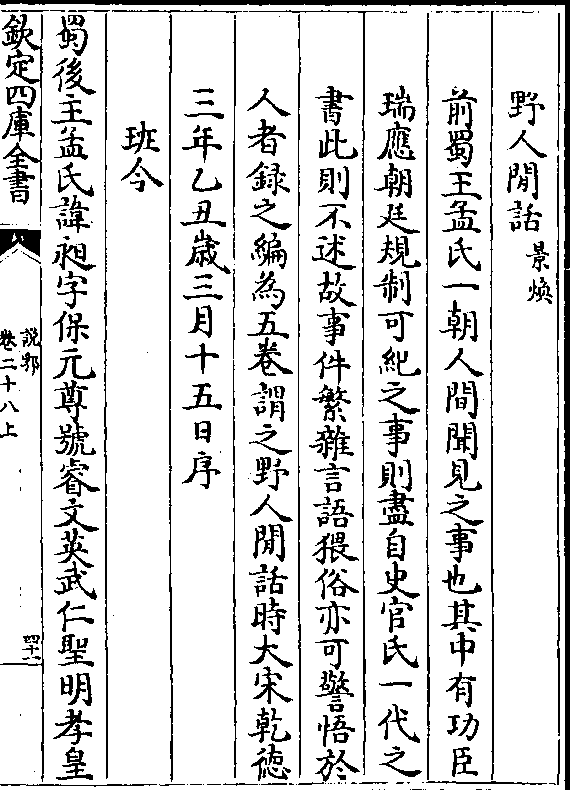 野人閒話景煥
前蜀王孟氏一朝人間聞見之事也其中有功臣
瑞應朝廷規制可紀之事則盡自史官氏一代之
書此則不述故事件繁雜言語猥俗亦可警悟於
人者録之編為五巻謂之野人閒話時大宋乾徳
三年乙丑歲三月十五日序
班令
蜀後主孟氏諱昶字保元尊號睿文英武仁聖明孝皇
欽定四庫全書
說郛
卷二十八上
四十一